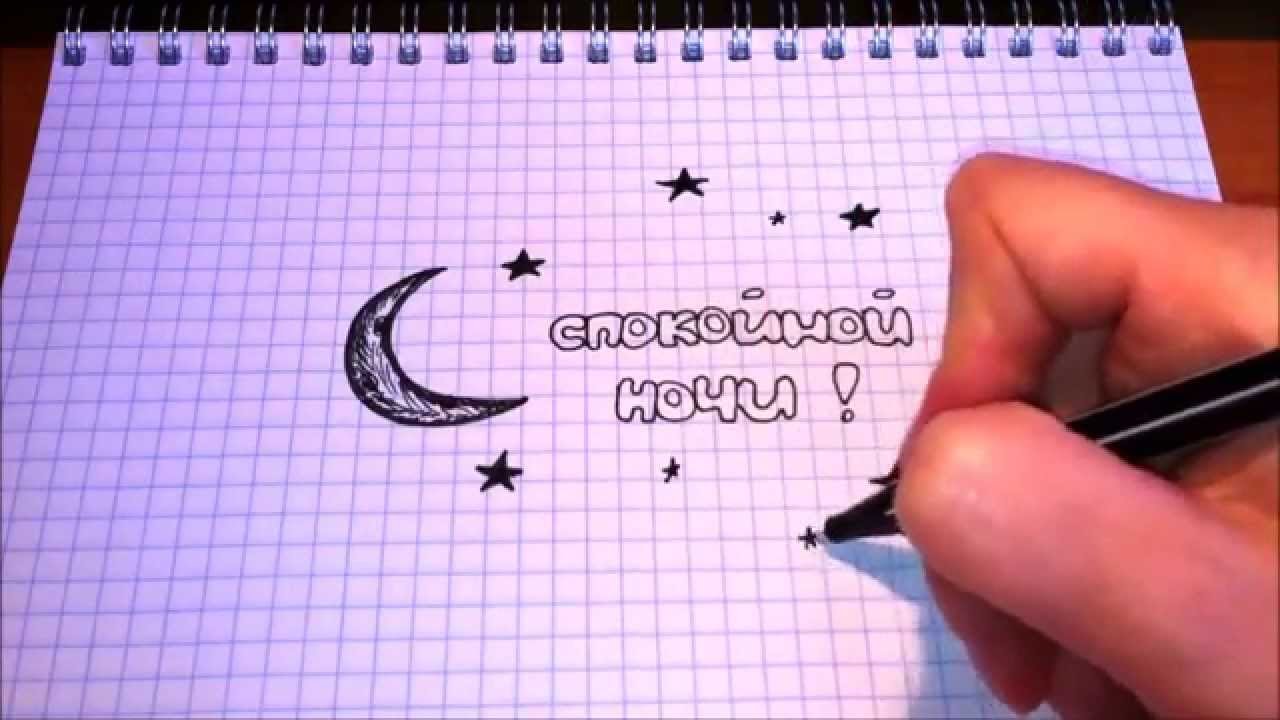 спокойной
ночи !